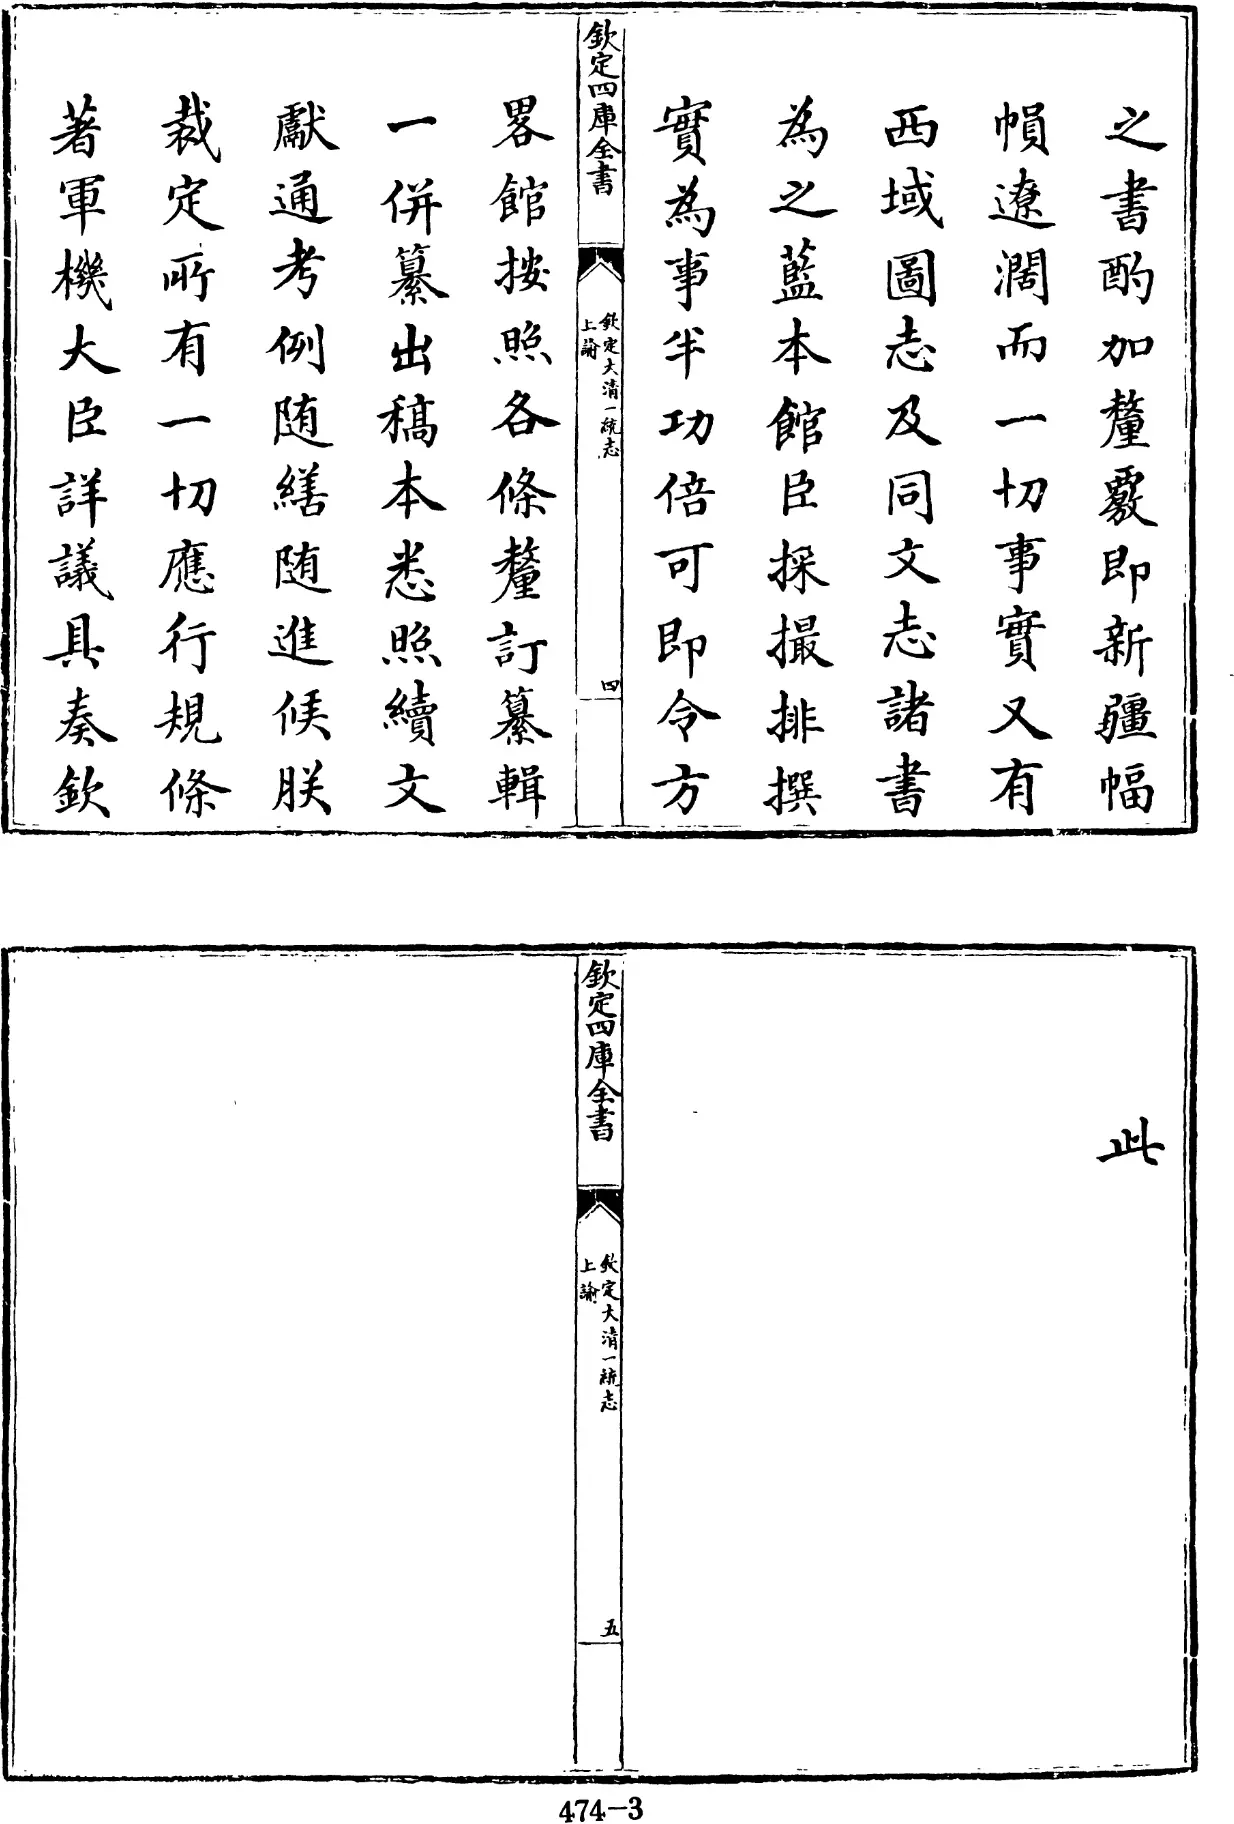 之書酌加釐覈即新疆幅
幀遼濶而一切事實又有
西域圖志及同文志諸書
為之藍本館臣採撮排撰
實為事半功倍可即令方
欽定四庫全書
欽定大清一統志
上諭
四
畧館按照各條釐訂纂輯
一併纂出稿本悉照續文
獻通考例随繕随進候朕
裁定所有一切應行規條
著軍機大臣詳議具奏欽
此
欽定四庫全書
欽定大清一統志
上諭
五
474-3